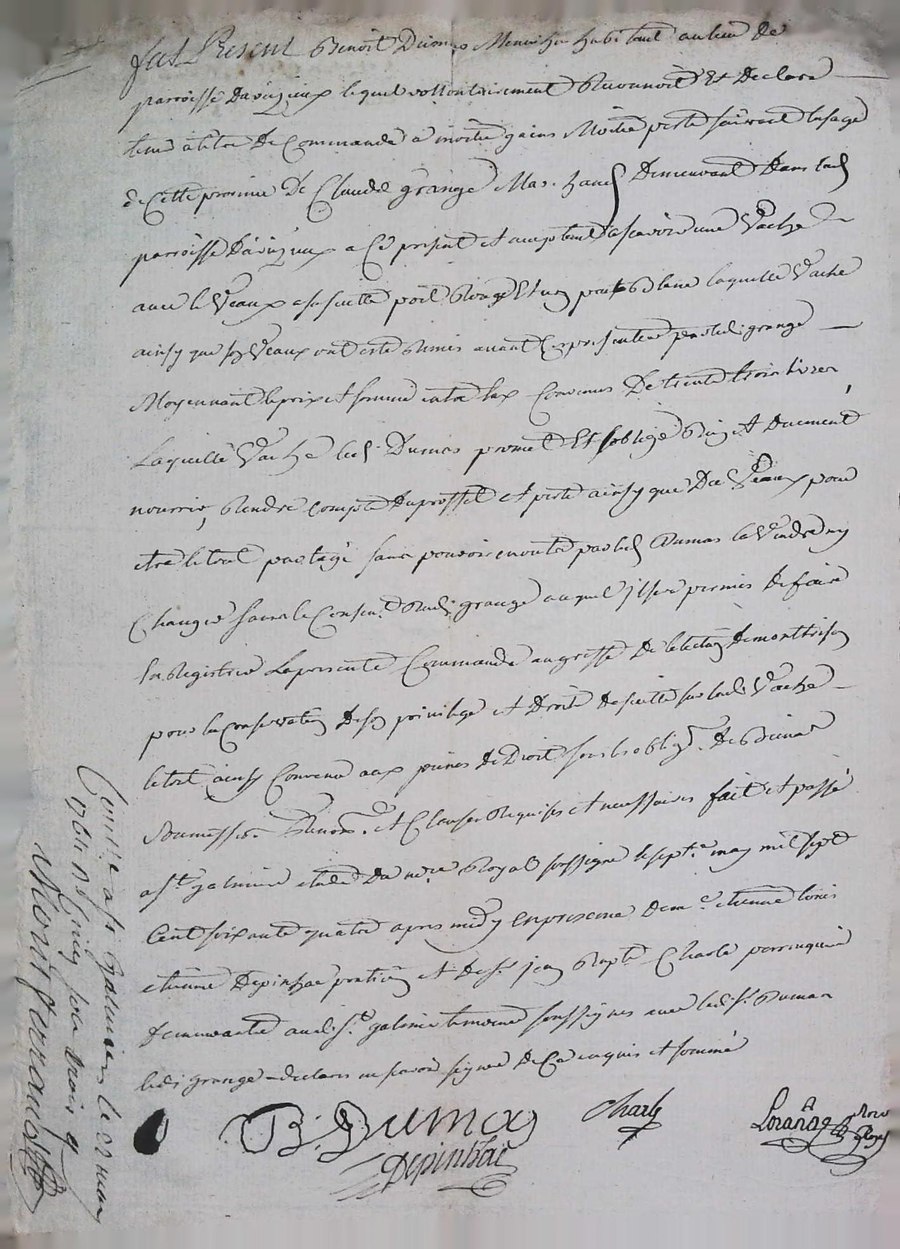 fut Present Benoit Dumas Menuisier habitant au lieu de
parroisse Davizieux lequel vollontairement Reconnoit Et Declare
tenir à titre De Commande a moitié gains Moitié perte suivant lusage
de Cette province De Claude grange Marchand Demeurant Dans lad
parroisse Davizieux a Ce present et acceptant ascavoir une Vache
avec le Veaux a sa suitte poil Rouge Et un peu Blanc laquelle Vache
ainsy que son Veaux ont esté Remis avant Ces presentes par led grange
Moyennant le prix et somme entre eux Convenus De trente trois livres
Laquelle Vache led Dumas promet Et soblige Bien et Duement
nourrir, Rendre Compte Du proffit et perte ainsy que Du Veaux pour
etre le tout partagé sans pouvoir par led Dumas la Vendre ny
Changer sans le Consent. Dud. grange auquel il sera permis De faire
En Registrer la presente Commande au greffe De lelection de montbrison
pour la Conservation De son privilege et Droit de suitte sur lad Vache
le tout ainsy Convenu aux peines de Droit sous les oblig. De Biens
Soumession Renon. et Clauses Requises et necessaires fait et passé
a St. galmier etude Du no.re Royal soussigné le sept.e may mil sept
Cent soixante quatre apres midy en presence De m.e etienne louis
etienne Depinhac praticien et De sr. jean Bapt. Charle perruquier
demeurants aud. St. galmier temoins soussignés avec led. sr. Dumas
led. grange a declaré ne scavoir signer De Ce enquis et sommé
B. Dumas Charle
Depinhac
Controlé a st galmier le 22 may
1764